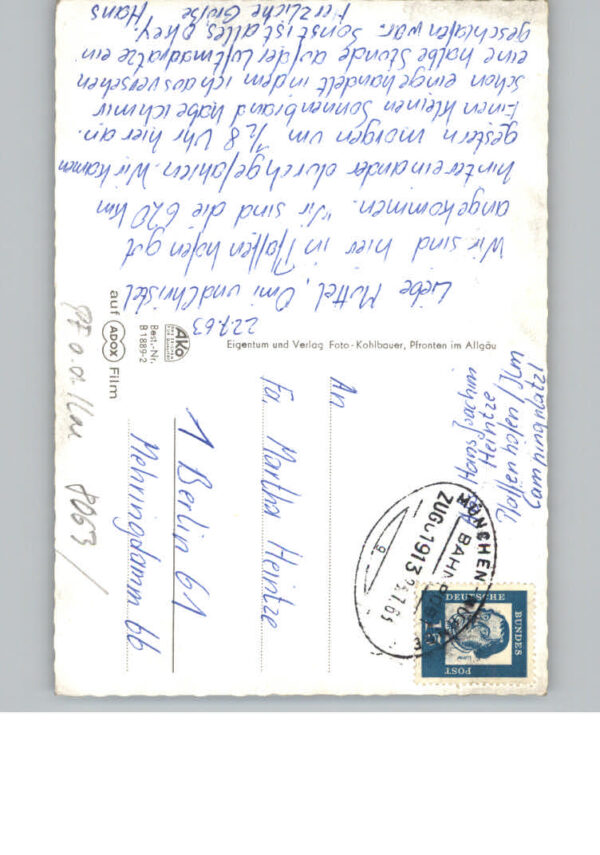 22.7.63
Liebe Muttel, Omi und Christel
Wir sind hier in Pfaffenhofen gut
angekommen. Wir sind die 620 km
hintereinander durchgefahren. Wir kamen
gestern morgen um 1/2 8 Uhr hier an.
Einen kleinen Sonnenbrand habe ich mir
schon eingehandelt indem ich aus versehen
eine halbe Stunde auf der Luftmadratze ein
geschlafen war. Sonst ist alles okey.
Herzliche Grüße
Hans
Eigentum und Verlag Foto-Kohlbauer, Pfronten im Allgäu
AKO
Best.-Nr.
B 1889-2
auf ADOX Film
Abs. Hans Joachim
Heintze
Pfaffenhofen / Ilm
Campingplatz
An
Fa. Martha Heintze
1 Berlin 61
Mehringdamm 66
MÜNCHEN
BAHNPOST
ZUG 01913
DEUTSCHE
BUNDES
POST
8063